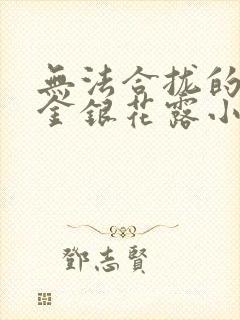 無法合拢的
金銀花露小
鄧志賢